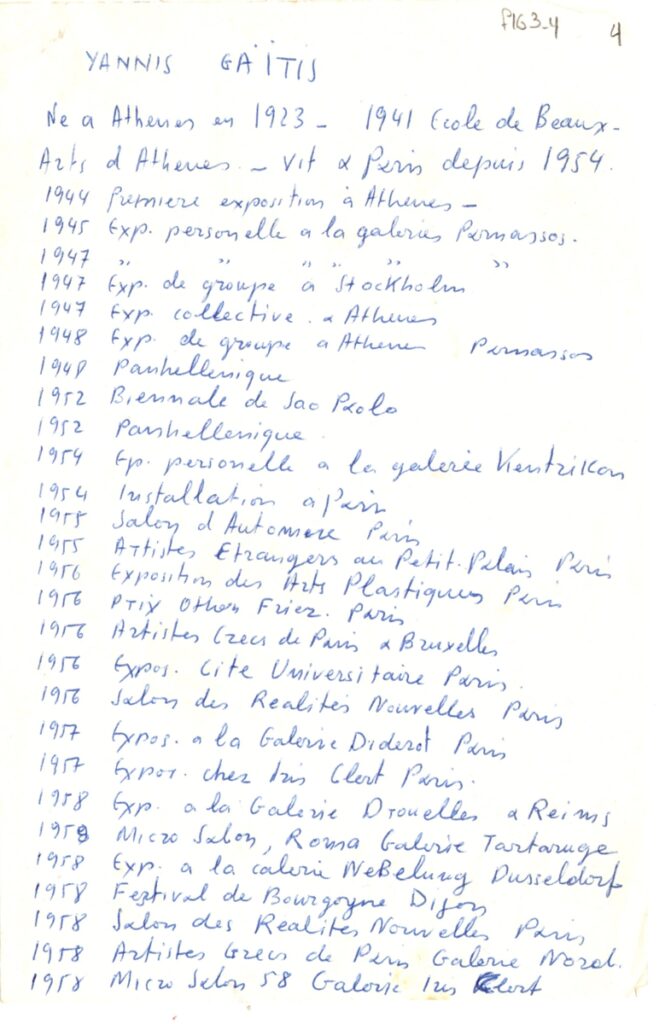 FIG 3-4 4
YANNIS GAÏTIS
Ne a Athenes en 1923 - 1941 Ecole de Beaux-
Arts d Athenes. - Vit a Paris depuis 1954.
1944 Premiere exposition à Athenes -
1945 Exp. personelle a la galeries Parnassos.
1947 " " " " " "
1947 Exp. de groupe a Stockholm
1947 Exp. collective. a Athenes
1948 Exp. de groupe a Athenes Parnassos
1948 Panhellenique
1952 Biennale de Sao Paolo
1952 Panhellenique.
1954 Ep. personelle a la galerie Kentrikon
1954 Installation a Paris
1955 Salon d Automne Paris
1955 Artistes Etrangers au Petit-Palais Paris
1956 Exposition des Arts Plastiques Paris
1956 Prix Othon Friez. Paris
1956 Artistes Grecs de Paris a Bruxelles
1956 Expos. Cite Universitaire Paris.
1956 Salon des Realités Nouvelles Paris
1957 Expos. a la Galerie Diderot Paris
1957 Expos. chez Iris Clert Paris.
1958 Exp. a la Galerie Drouelles a Reims
1958 Micro Salon, Roma Galerie Tartaruge
1958 Exp. a la calerie NeBelung Dusseldorf
1958 Festival de Bourgogne Dijon
1958 Salon des Realites Nouvelles Paris
1958 Artistes Grecs de Paris Galerie Nord.
1958 Micro Salon 58 Galerie Iris Clert